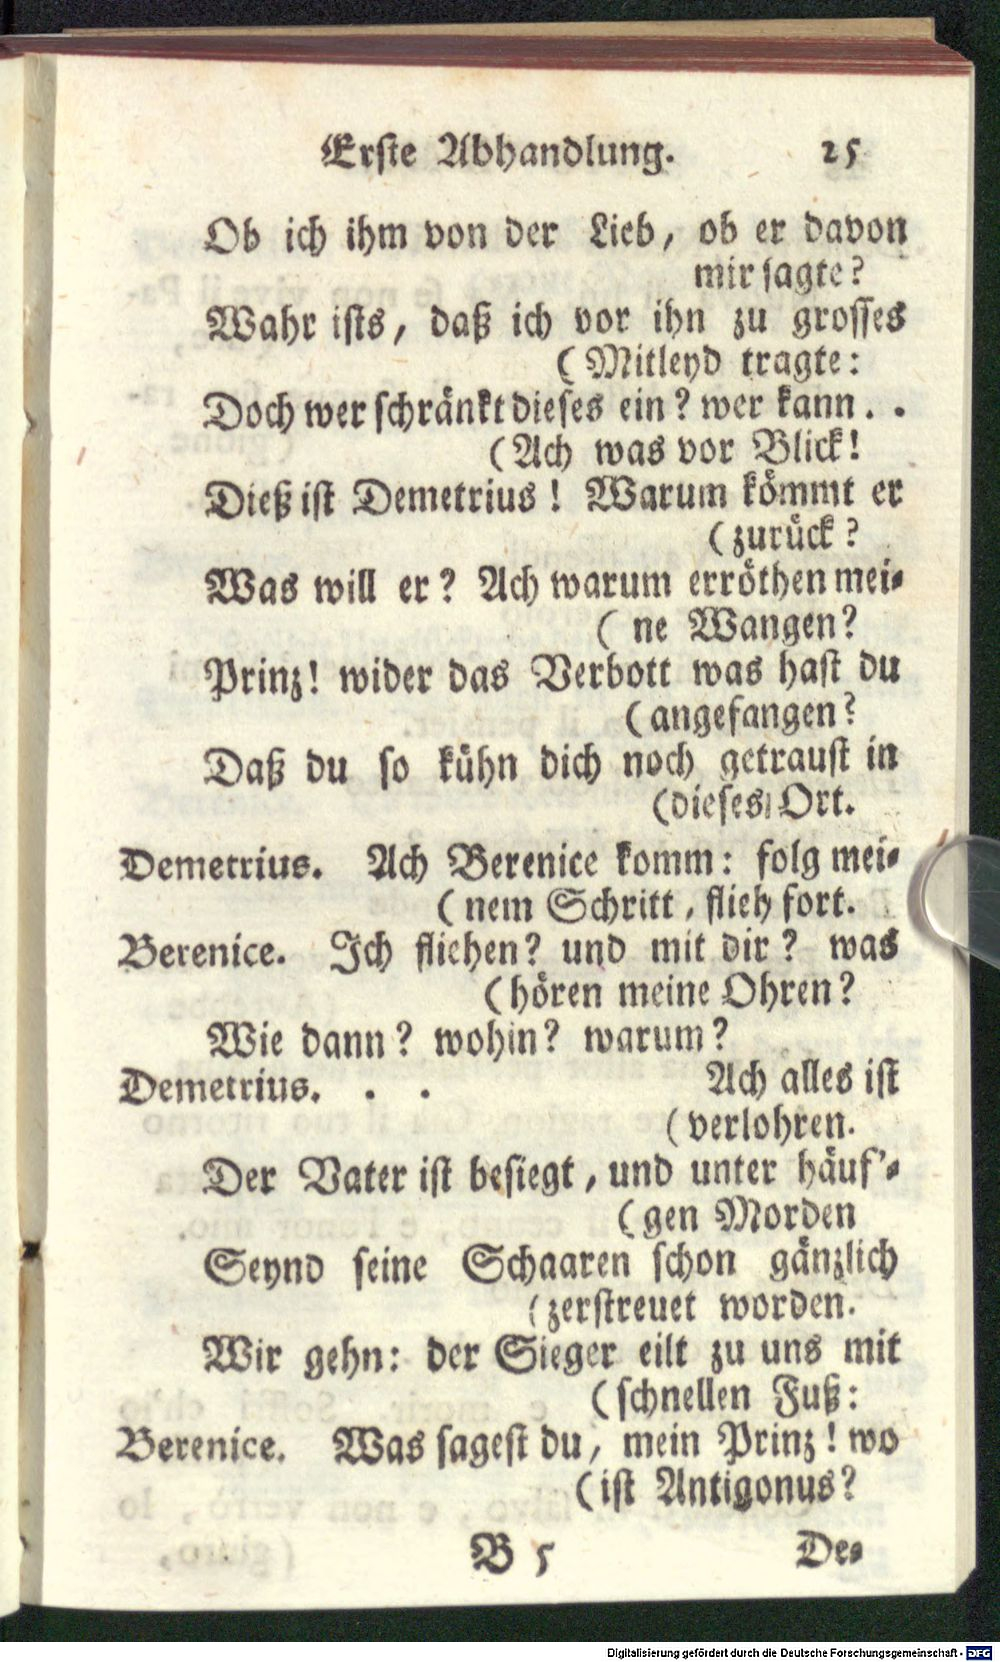 Erste Abhandlung. 25
Ob ich ihm von der Lieb, ob er davon
mir sagte?
Wahr ists, daß ich vor ihn zu grosses
(Mitleyd tragte:
Doch wer schränkt dieses ein? wer kann. .
(Ach was vor Blick!
Dieß ist Demetrius! Warum kömmt er
(zurück?
Was will er? Ach warum erröthen mei-
(ne Wangen?
Prinz! wider das Verbott was hast du
(angefangen?
Daß du so kühn dich noch getraust in
(dieses Ort.
Demetrius. Ach Berenice komm: folg mei-
(nem Schritt, flieh fort.
Berenice. Ich fliehen? und mit dir? was
(hören meine Ohren?
Wie dann? wohin? warum?
Demetrius. . . Ach alles ist
(verlohren.
Der Vater ist besiegt, und unter häuf'-
(gen Morden
Seynd seine Schaaren schon gänzlich
(zerstreuet worden.
Wir gehn: der Sieger eilt zu uns mit
(schnellen Fuß:
Berenice. Was sagest du, mein Prinz! wo
(ist Antigonus?
B 5 De-
Digitalisierung gefördert durch die Deutsche Forschungsgemeinschaft - DFG